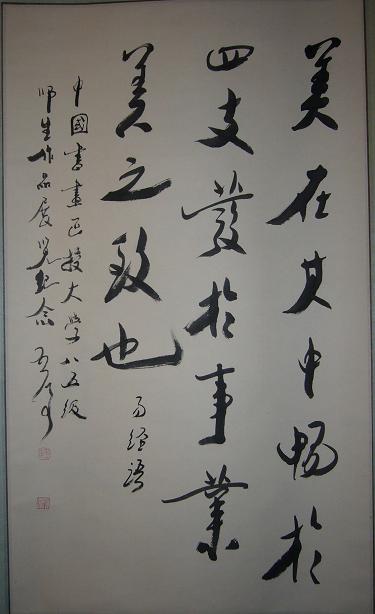 美在其中畅於
四支發於事業
美之致也
易經語
中國書畫函授大學八五級
師生作品展览紀念